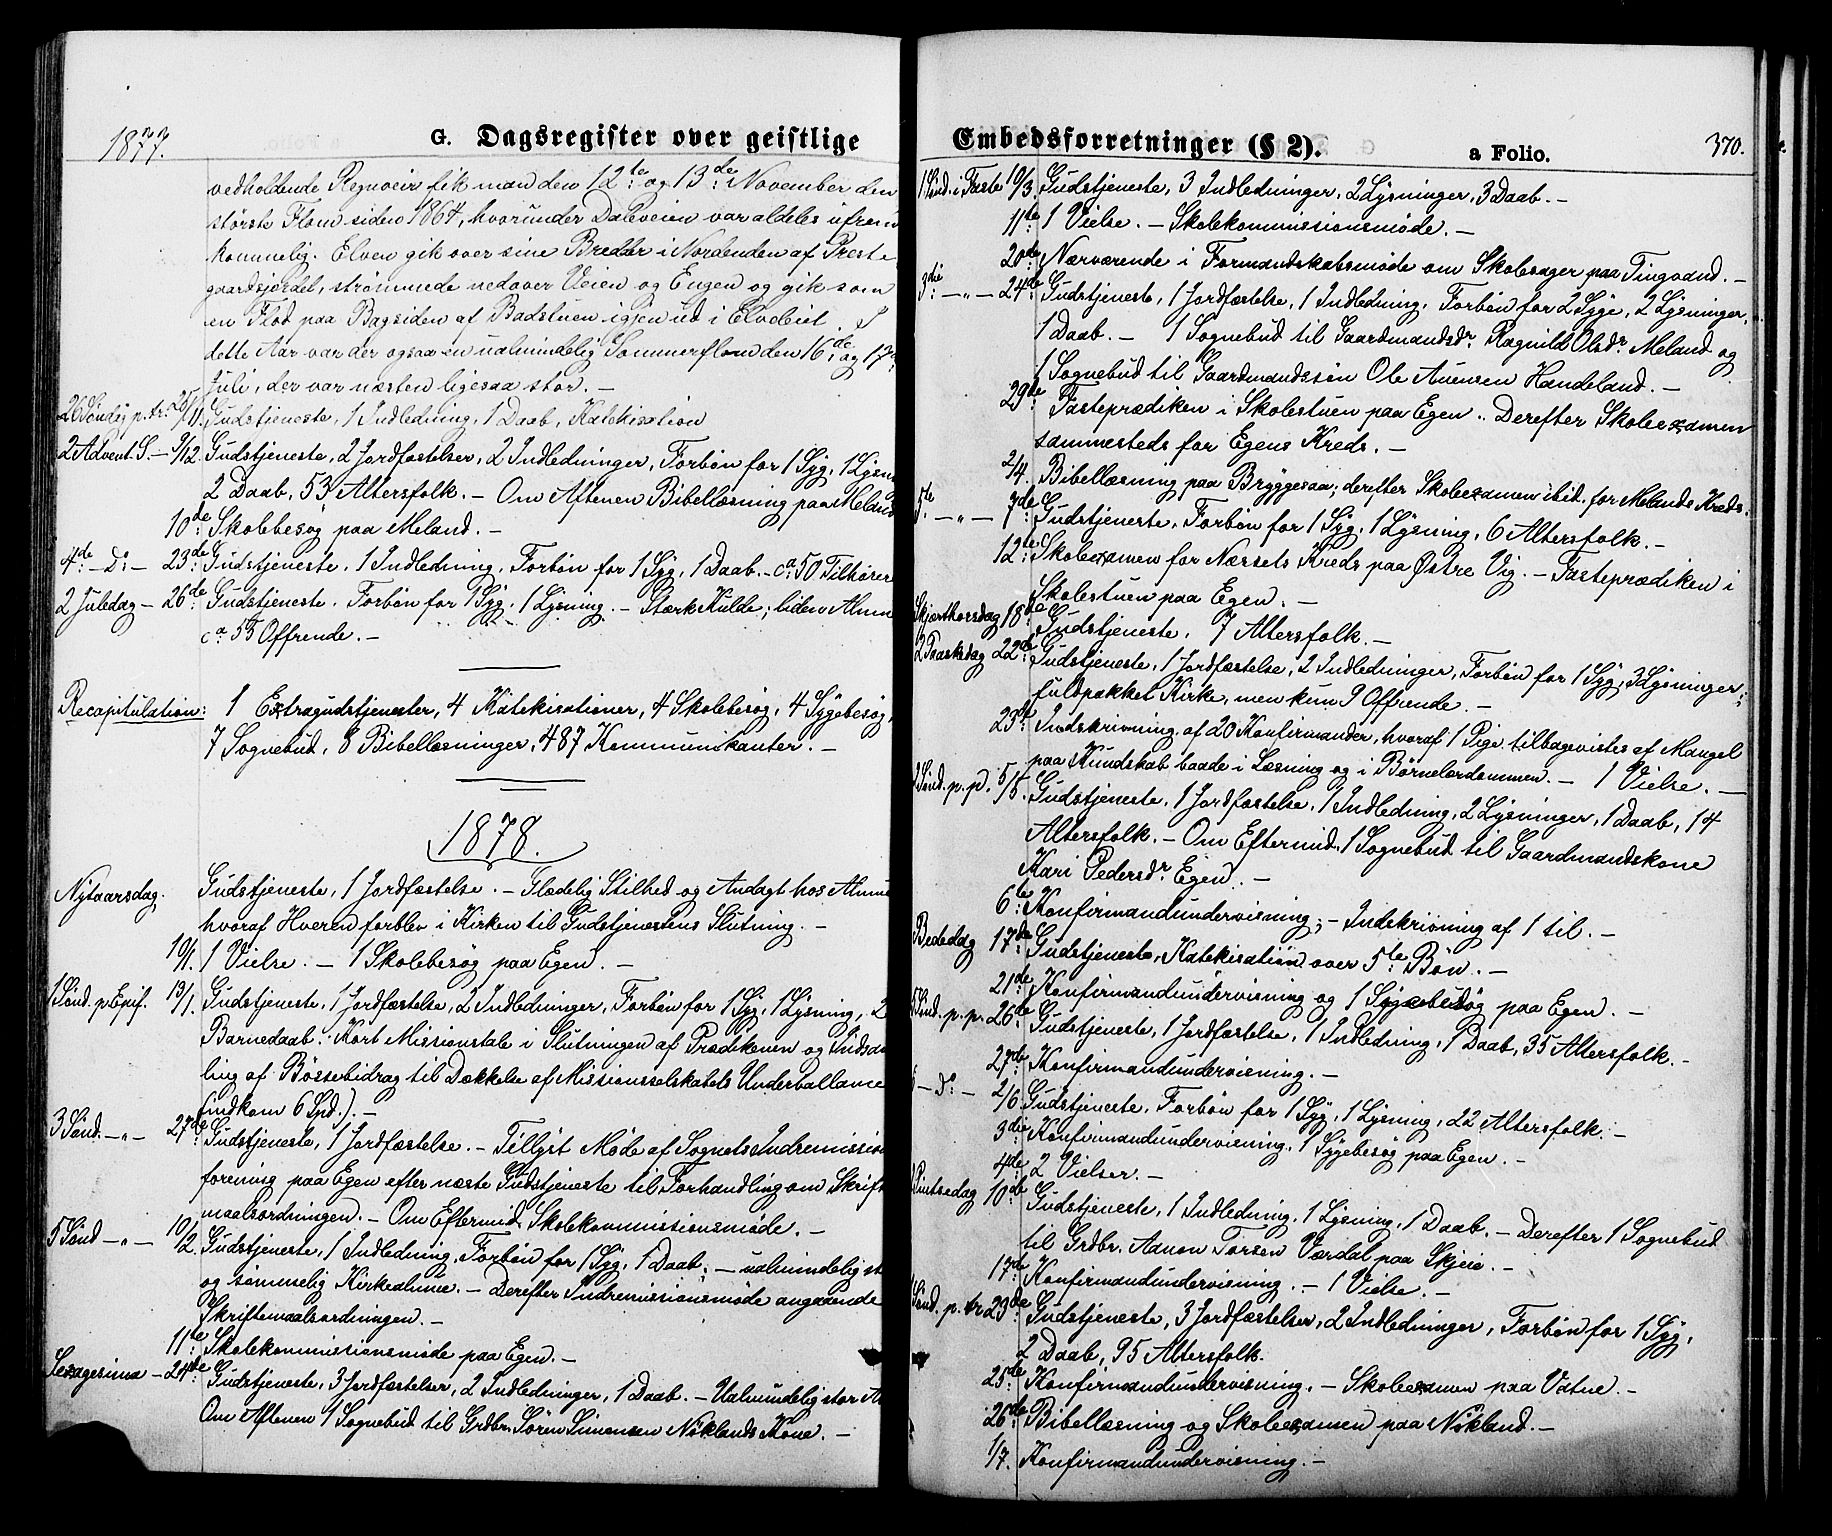 1877.
G. Dagsregister over geistlige
vedholdende Regnveir fik man den 12te og 13de November den
største Flom siden 1864, hvorunder Dalveien var aldeles ufrem
kommelig. Elven gik over sine Bredder i Nordenden af Preste
gaardsjordet, strømmede nedover Veien og Engen og gik som
en Flod paa Bagsiden af Badstuen igjen ud i Elveleiet. I
dette Aar var der ogsaa en ualmindelig Sommerflom den 16de og 17
Juli, der var næsten ligesaa stor. —
26 Søndg p. tr. 25/11. Gudstjeneste, 1 Indledning, 1 Daab, Katekisation
2 Advent S. — 9/12 Gudstjeneste, 2 Jordfæstelser, 2 Indledninger, Forbøn for 1 Syg, 1 Lysn
2 Daab, 53 Altersfolk. — Om Aftenen Bibellæsning paa Meland
10de Skolebesøg paa Meland. —
4de — Do — 23de Gudstjeneste, 1 Indledning, Forbøn for 1 Syg, 1 Daab. — ca 50 Tilhører
2 Juledag — 26de Gudstjeneste. Forbøn for 1 Syg, 1 Lysning. — Stærk Kulde; liden Almu
ca 55 Offrende. —
Recapitulation: 1 Extragudstjenester, 4 Katekisationer, 4 Skolebesøg, 4 Sygebesøg,
7 Sognebud, 8 Bibellæsninger, 487 Kommunikanter. —
1878.
Nytaarsdag. Gudstjeneste, 1 Jordfæstelse. — Glædelig Stilhed og Andagt hos Almu
hvoraf Hveren forblev i Kirken til Gudstjenestens Slutning. —
10/1. 1 Vielse. — 1 Skolebesøg paa Egen. —
1 Sønd. p Epif. 13/1. Gudstjeneste, 1 Jordfæstelse, 2 Indledninger, Forbøn for 1 Syg, 1 Lysning, 2
Barnedaab. Kort Missionstale i Slutningen af Prædikenen og Indsam
ling af Bøssebidrag til Dækkelse af Missionsselskabets Underballance
(indkom 6 Spd.). —
3 Sønd. — „ — 27de Gudstjeneste, 1 Jordfæstelse. — Tillyst Møde af Sognets Indremission
forening paa Egen efter næste Gudstjeneste til Forhandling om Skrift
maalsordningen. — Om Eftermid. Skolekommissionsmøde. —
5 Sønd — „ — 10/2. Gudstjeneste, 1 Indledning, Forbøn for 1 Syg, 1 Daab. — ualmindelig st
og sømmelig Kirkealmue. — Derefter Indremissionsmøde angaaende
Skriftemaalsordningen. —
11te Skolekommissionsmøde paa Egen. —
Sexagesima — 24de Gudstjeneste, 3 Jordfæstelser, 2 Indledninger, 1 Daab. — Ualmindelig stor A
Om Aftenen 1 Sognebud til Grdbr. Søren Simensen Nøklands Kone. —
Embedsforretninger (§ 2).
a Folio.
370.
1 Sønd. i Faste 10/3. Gudstjeneste, 3 Indledninger, 2 Lysninger, 3 Daab. —
11te 1 Vielse. — Skolekommissionsmøde. —
20de Nærværende i Formandskabsmøde om Skolesager paa Tingvand. —
3die — „ — 24de Gudstjeneste, 1 Jordfæstelse, 1 Indledning, Forbøn for 2 Syge, 2 Lysninger,
1 Daab. — 1 Sognebud til Gaardmandsdr. Ragnild Olsdr. Meland og
1 Sognebud til Gaardmandssøn Ole Auensen Handeland. —
29de Fasteprædiken i Skolestuen paa Egen. Derefter Skoleexamen
sammesteds for Egens Kreds. —
2/4. Bibellæsning paa Bryggesaa; derefter Skoleexamen ibid. for Melands Kreds.
5te — „ — 7de Gudstjeneste, Forbøn for 1 Syg, 1 Lysning, 6 Altersfolk. —
12te Skoleexamen for Næssets Kreds paa Østre Vig. — Fasteprædiken i
Skolestuen paa Egen. —
Skjærthorsdag 18de Gudstjeneste, 7 Altersfolk. —
2 Paaskedag 22de Gudstjeneste, 1 Jordfæstelse, 2 Indledninger, Forbøn for 1 Syg, 3 Lysninger;
fuldpakket Kirke, men kun 9 Offrende. —
23de Indskrivning af 20 Konfirmander, hvoraf 1 Pige tilbagevistes af Mangel
paa Kundskab baade i Læsning og i Børnelærdommen. — 1 Vielse. —
2 Sønd. p. p. 5/5. Gudstjeneste, 1 Jordfæstelse, 1 Indledning, 2 Lysninger, 1 Daab, 14
Altersfolk. — Om Eftermid. 1 Sognebud til Gaardmandskone
Kari Pedersdr. Egen. —
6te Konfirmandundervisning; — Indskrivning af 1 til. —
Bededag 17de Gudstjeneste, Katekisation over 5te Bøn. —
21de Konfirmandundervisning og 1 Sygebesøg paa Egen. —
5 Sønd. p. p. 26de Gudstjeneste, 1 Jordfæstelse, 1 Indledning, 1 Daab, 35 Altersfolk. —
27de Konfirmandundervisning. —
— do — 2/6. Gudstjeneste, Forbøn for 1 Syg, 1 Lysning, 22 Altersfolk. —
3die Konfirmandundervisning, 1 Sygebesøg paa Egen. —
4de 2 Vielser. —
Pintsedag 10de Gudstjeneste, 1 Indledning, 1 Lysning, 1 Daab. — Derefter 1 Sognebud
til Grdbr. Aanon Torsen Værdal paa Skjeie. —
17de Konfirmandundervisning. — 1 Vielse. —
Sønd. p. tr 23de Gudstjeneste, 3 Jordfæstelser, 2 Indledninger, Forbøn for 1 Syg,
2 Daab, 95 Altersfolk.
25de Konfirmandundervisning. — Skoleexamen paa Vatne. —
26de Bibellæsning og Skoleexamen paa Nökland. —
1/7. Konfirmandundervisning. —